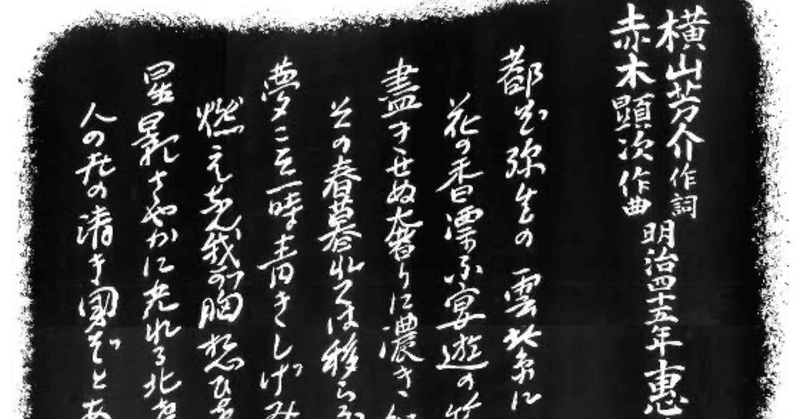 横山芳介作詞
赤木顕次作曲
明治四十五年 恵
都ぞ弥生の 雲紫に
花の香漂ふ宴遊の
盡きせぬ奢りに濃き
その春暮れては移らふ
夢こそ一時青きしげみ
燃えなん我が胸想ひを
星影さやかに光れる北
人の世の清き國ぞとあ